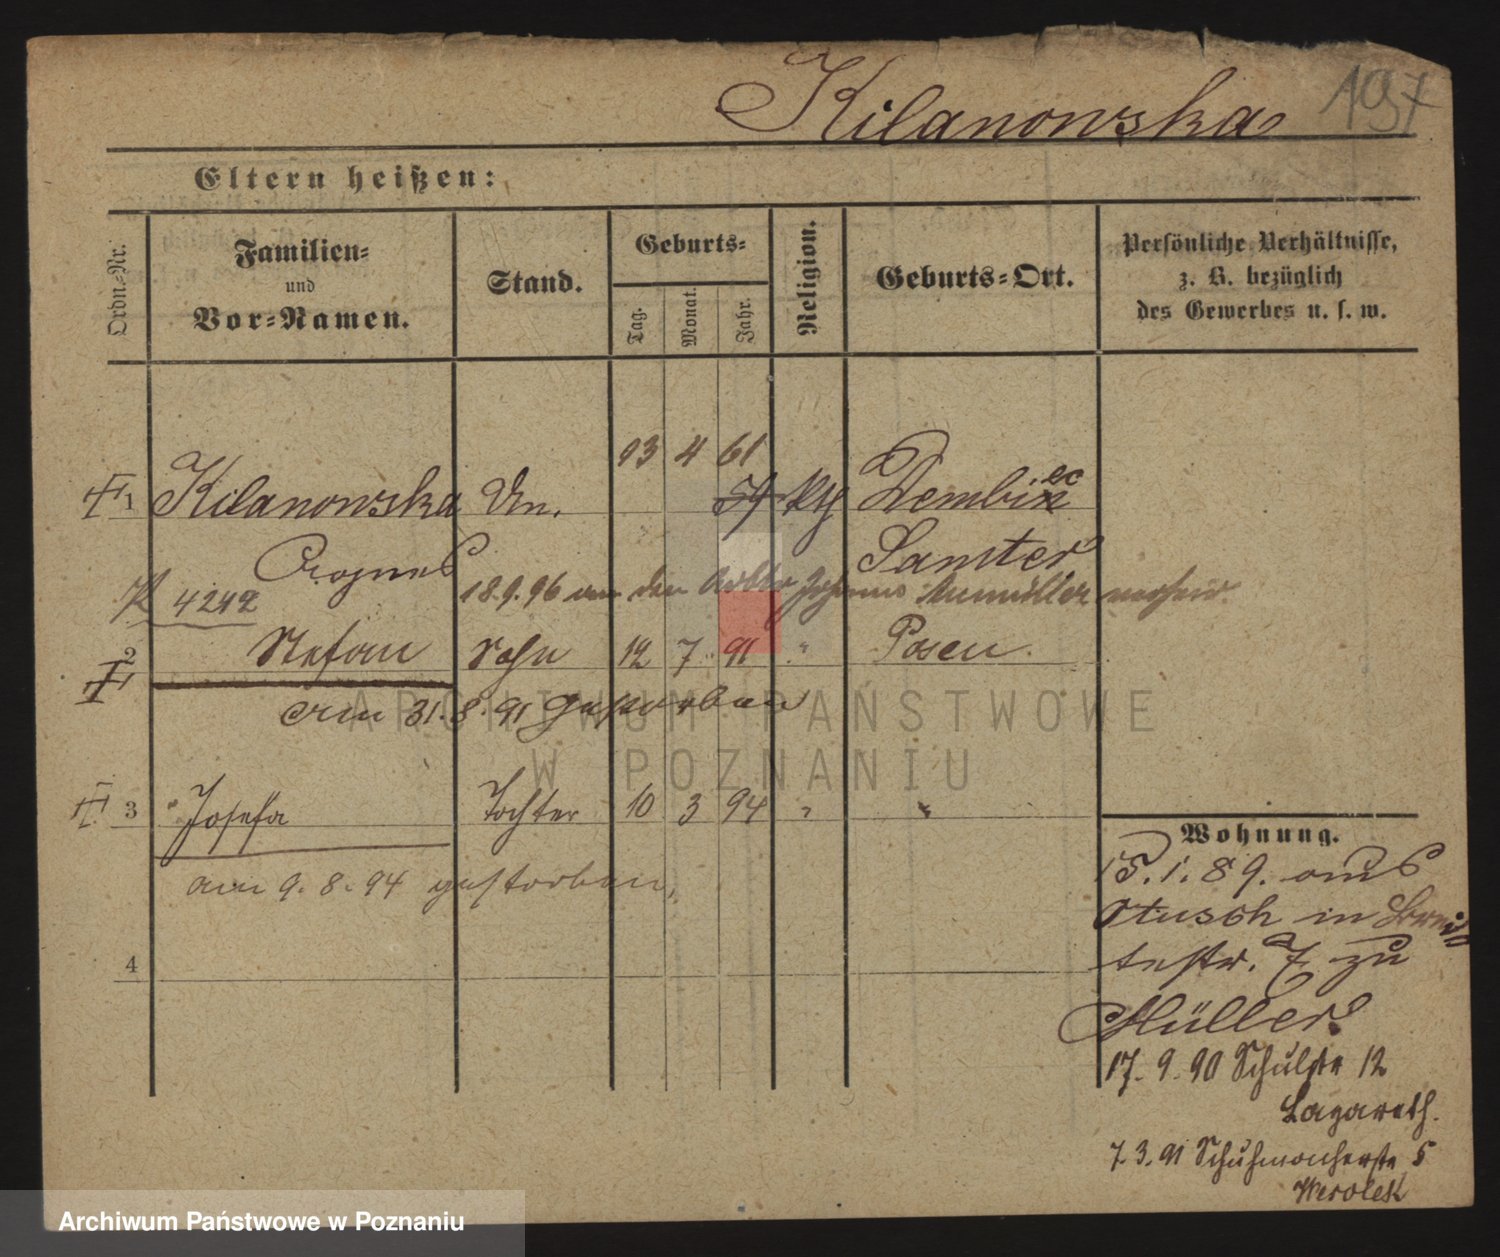 Kilanowska 197
Eltern heißen:
Ordn.-Nr.
Familien- und Vor-Namen.
Stand.
Geburts-
Tag. Monat. Jahr.
Religion.
Geburts-Ort.
Persönliche Verhältnisse,
z. B. bezüglich
des Gewerbes u. s. w.
13 4 61
1 Kilanowska Un. 59 kth Dembiec
Agnes Samter
4242 18.9.96 an den Arbtr Johann
2 Stefan Sohn 12 7 91 " Posen.
am 31.8.91 gestorben
3 Josefa Tochter 10 3 94 " "
am 9.8.94 gestorben,
4
Wohnung.
15.1.89. aus
Otusch in Brei-
testr. 7 zu
Müller
17.9.90 Schulstr 12
Lazareth.
7.3.91 Schuhmacherstr 5
ARCHIWUM PAŃSTWOWE
W POZNANIU
Archiwum Państwowe w Poznaniu